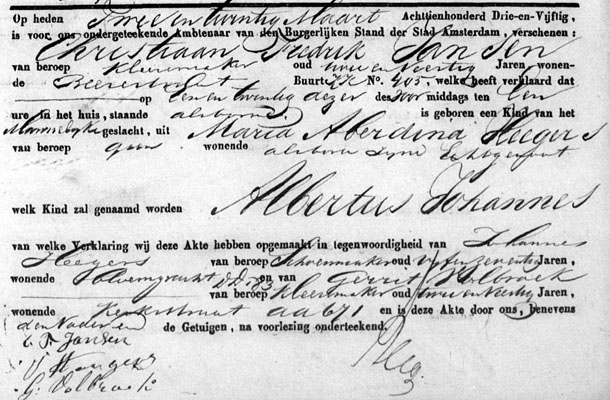 Op heden Twee en twintig Maart Achttienhonderd Drie-en-Vijftig,
is voor ons ondergeteekende Ambtenaar van den Burgerlijken Stand der Stad Amsterdam, verschenen:
Christiaan Fredrik Jansen
van beroep Kleermaker oud twee en veertig Jaren wonen-
de Buurt KK No. 405, welke heeft verklaard dat
op Een en twintig dezer des voor middags ten Een
ure in het huis, staande alsboven is geboren een Kind van het
Mannelijke geslacht, uit Maria Aberdina Heegers
van beroep geen wonende alsboven zijne Echtgenoot
welk Kind zal genaamd worden Albertus Johannes
van welke Verklaring wij deze Akte hebben opgemaakt in tegenwoordigheid van Johannes
Heegers van beroep Schoenmaker oud vijf en zeventig Jaren,
wonende DD 23 en van Gerrit Holbroek
van beroep Kleermaker oud twee en veertig Jaren,
wonende Kerkstraat aa 671 en is deze Akte door ons, benevens
den Vader en de Getuigen, na voorlezing onderteekend.
C. F. Jansen
J Heegers
G. Volbroek